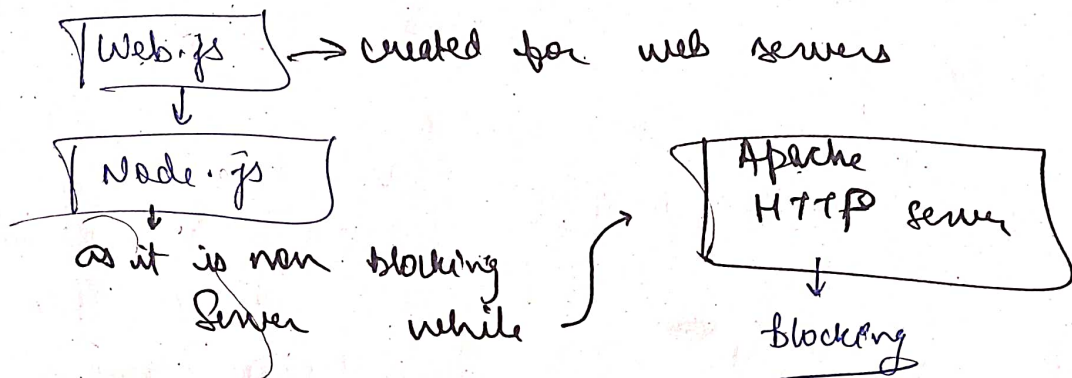 Web.js → created for web servers
↓
Node.js
↓
as it is non blocking
Server while
Apache
HTTP server
↓
blocking